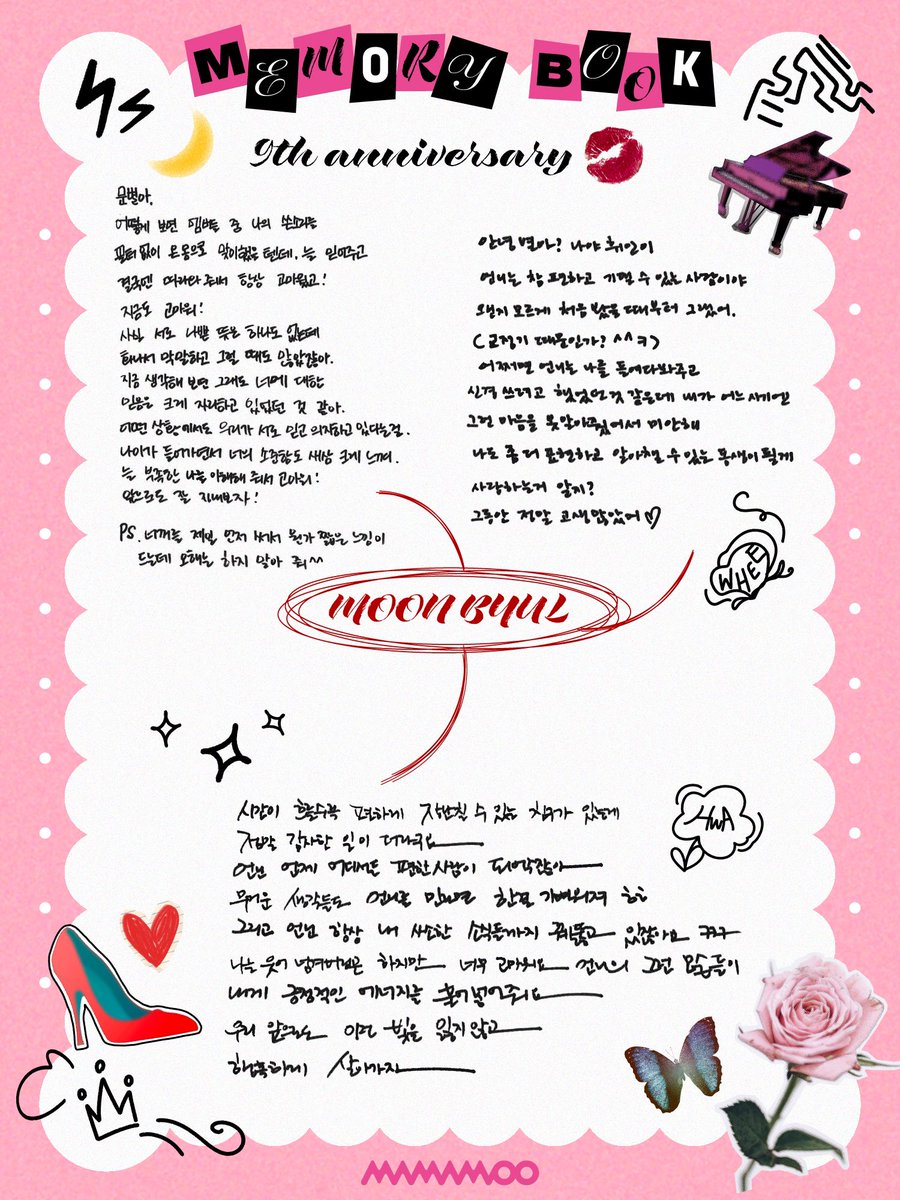 MEMORY BOOK
9th anniversary
문별아,
어떻게 보면 멤버들 중 나의 쓴소리를
필터 없이 온몸으로 맞이했을 텐데, 늘 믿어주고
결국엔 따라와 줘서 항상 고마웠고!
지금도 고마워!
사실 서로 나쁠 뜻은 하나도 없는데
막막하고 그럴 때도 많았잖아.
지금 생각해 보면 그래도 너에 대한
믿음은 크게 자리하고 있었던 것 같아.
어떤 상황에서도 우리가 서로 믿고 의지하고 있다는걸.
나이가 들어가면서 너의 소중함도 새삼 크게 느껴.
늘 부족한 나를 이해해 줘서 고마워!
앞으로도 잘 지내보자!
PS. 너꺼를 제일 먼저 써서 뭔가 짧은 느낌이
드는데 오해는 하지 말아 줘^^
안녕 별아? 나야 휘인이
언니는 참 편하고 기댈 수 있는 사람이야
왠지 모르게 처음 봤을 때부터 그랬어.
(교정기 때문인가? ^^ㅋ)
어쩌면 언니는 나를 들여다봐주고
신경 쓰려고 했었던 것 같은데 내가 어느 시기엔
그런 마음을 못 알아줬어서 미안해
나도 좀 더 표현하고 알아챌 수 있는 동생이 될게
사랑하는거 알지?
그동안 정말 고생 많았어♡
WHEE
MOON BYUL
시간이 흐를수록 편하게 장난칠 수 있는 친구가 있는게
참 감사한 일이 더라구요
언닌 언제 어디서든 편한 사람이 되어주잖아
무거운 생각들도 언니를 만나면 한결 가벼워져 ㅎㅎ
그리고 언닌 항상 내 사소한 소식들까지 꿰뚫고 있잖아요 ㅋㅋㅋ
나는 웃어 넘겨버리곤 하지만 너무 고마워요 언니의 그런 모습들이
내게 긍정적인 에너지를 불어넣어줘요
우리 앞으로도 이런 빛을 잃지 않고
행복하게 살아가자
HWA
MAMAMOO